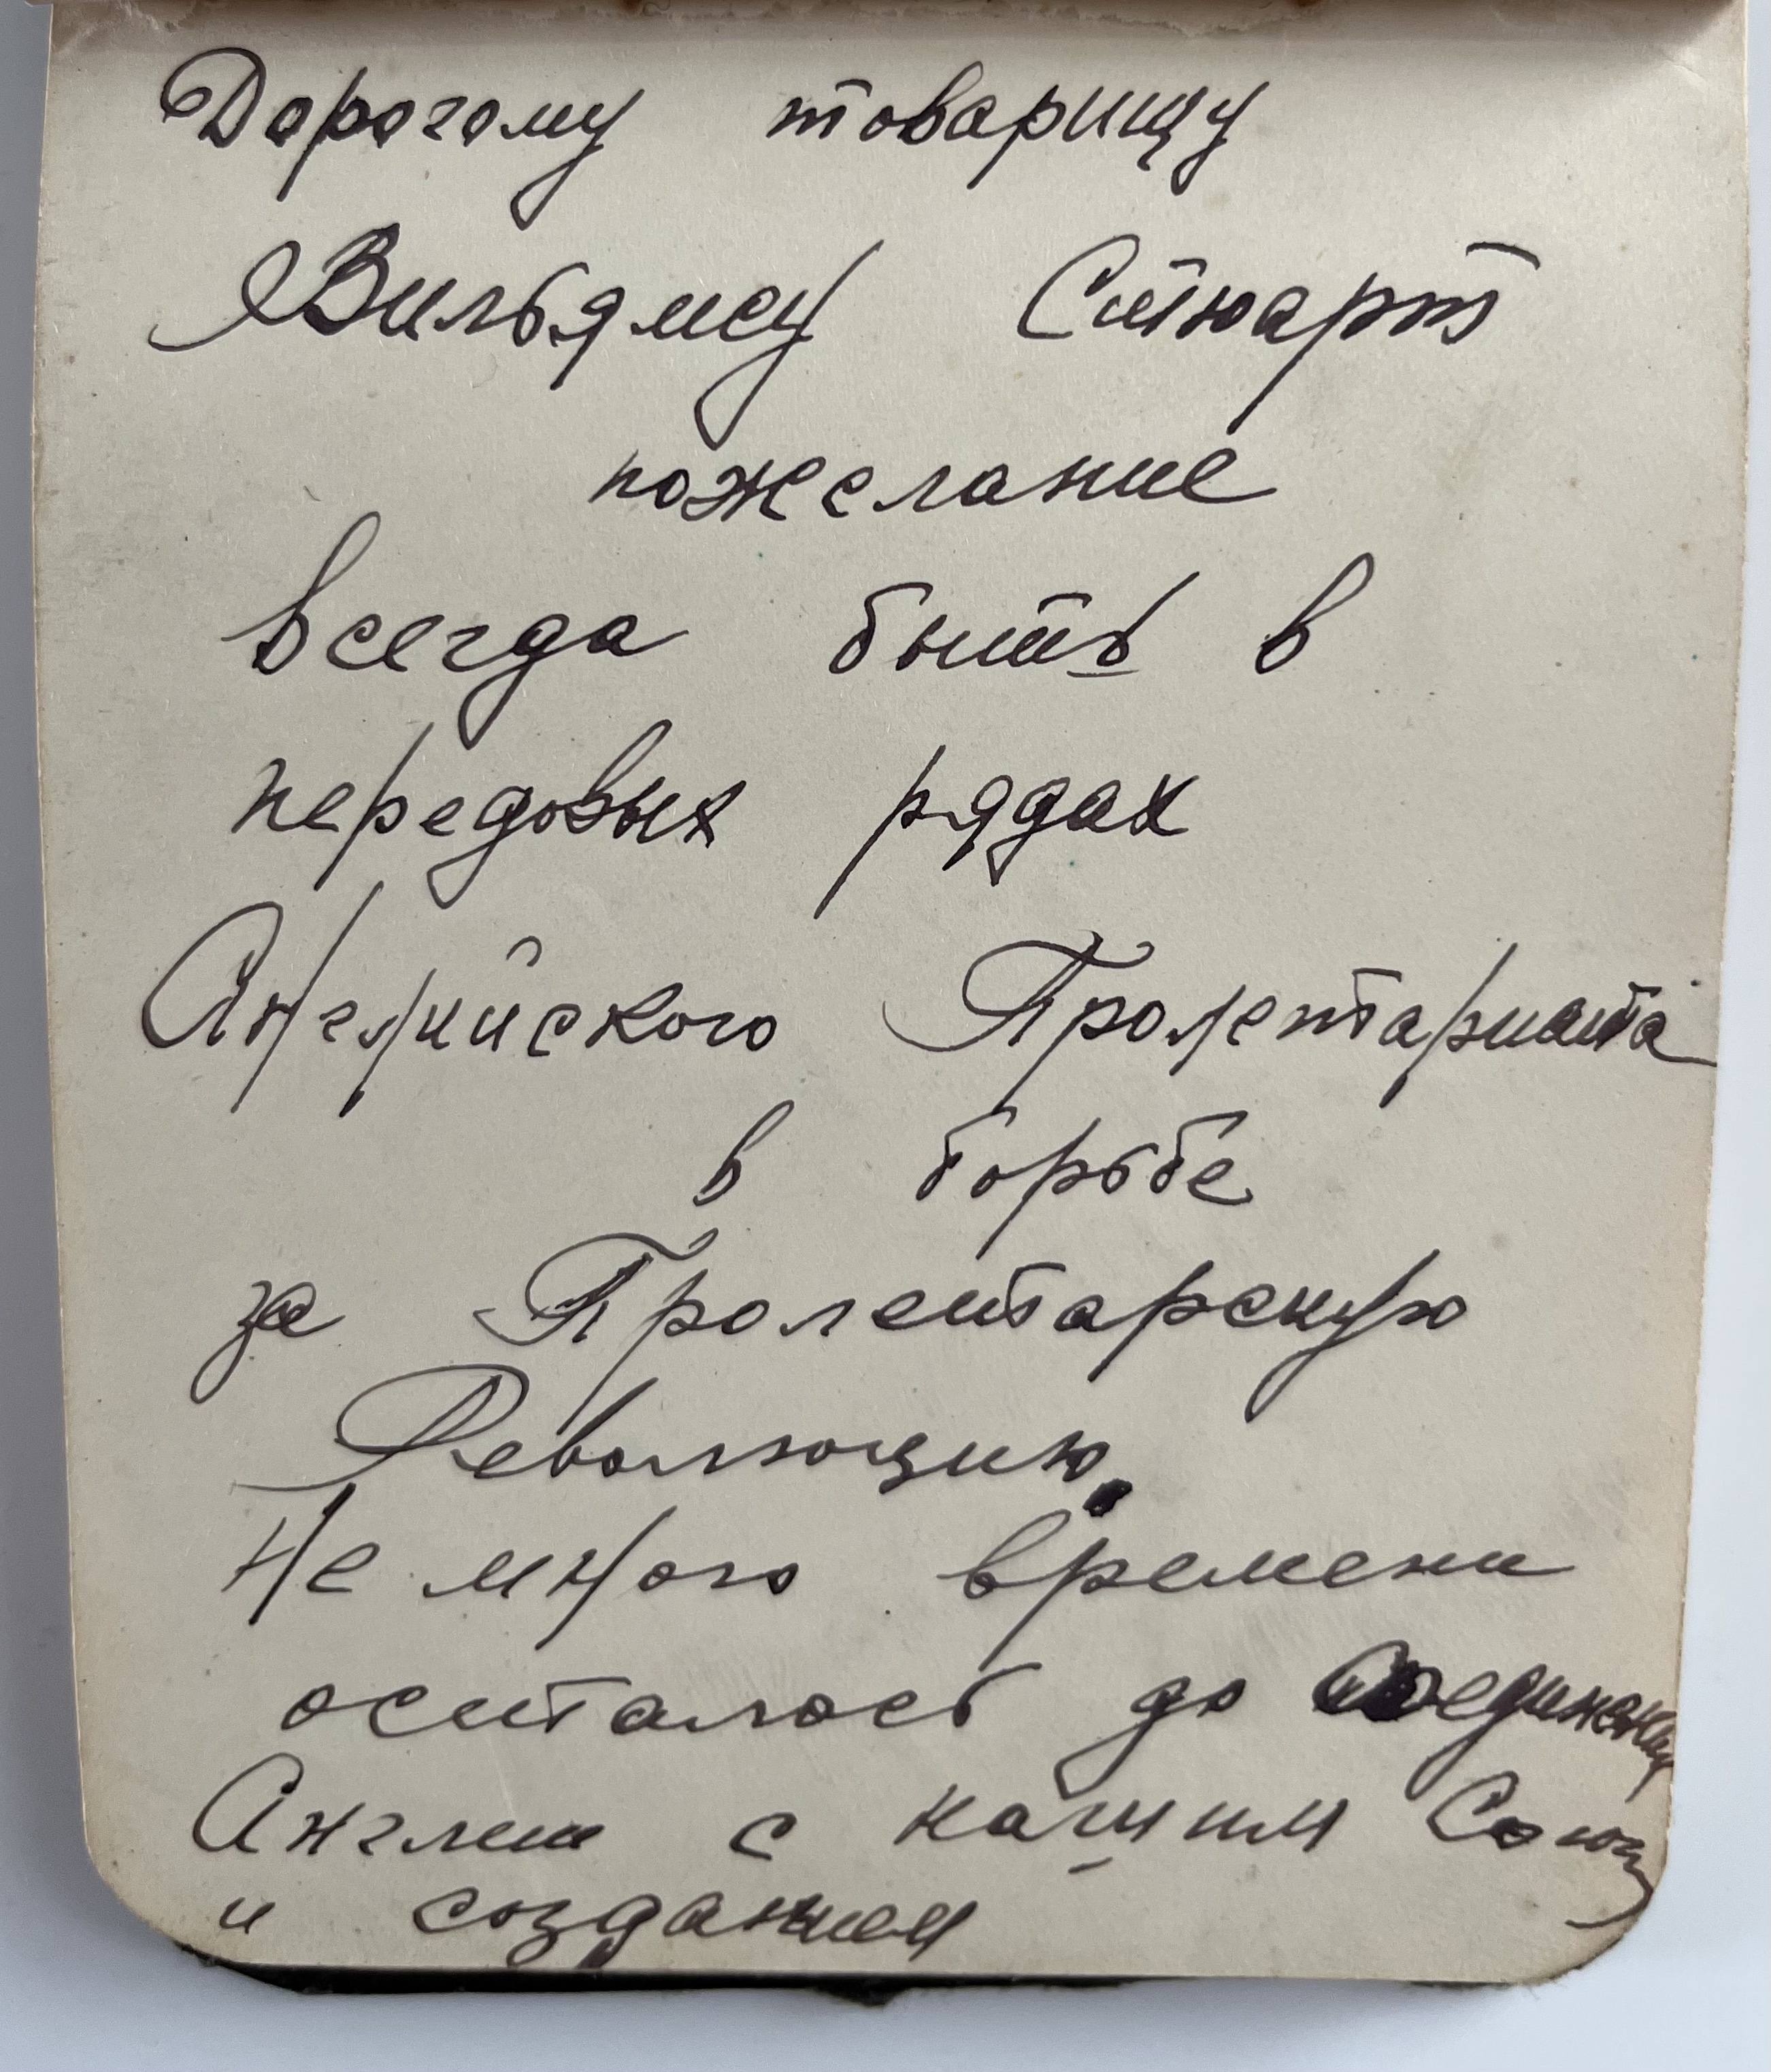 Дорогому товарищу
Вильямсу Стюарт
пожелание
всегда быть в
передовых рядах
Английского Пролетариата
в борьбе
за Пролетарскую
Революцию.
Не много времени
осталось до соединения
Англии с нашим Союз
и созданием